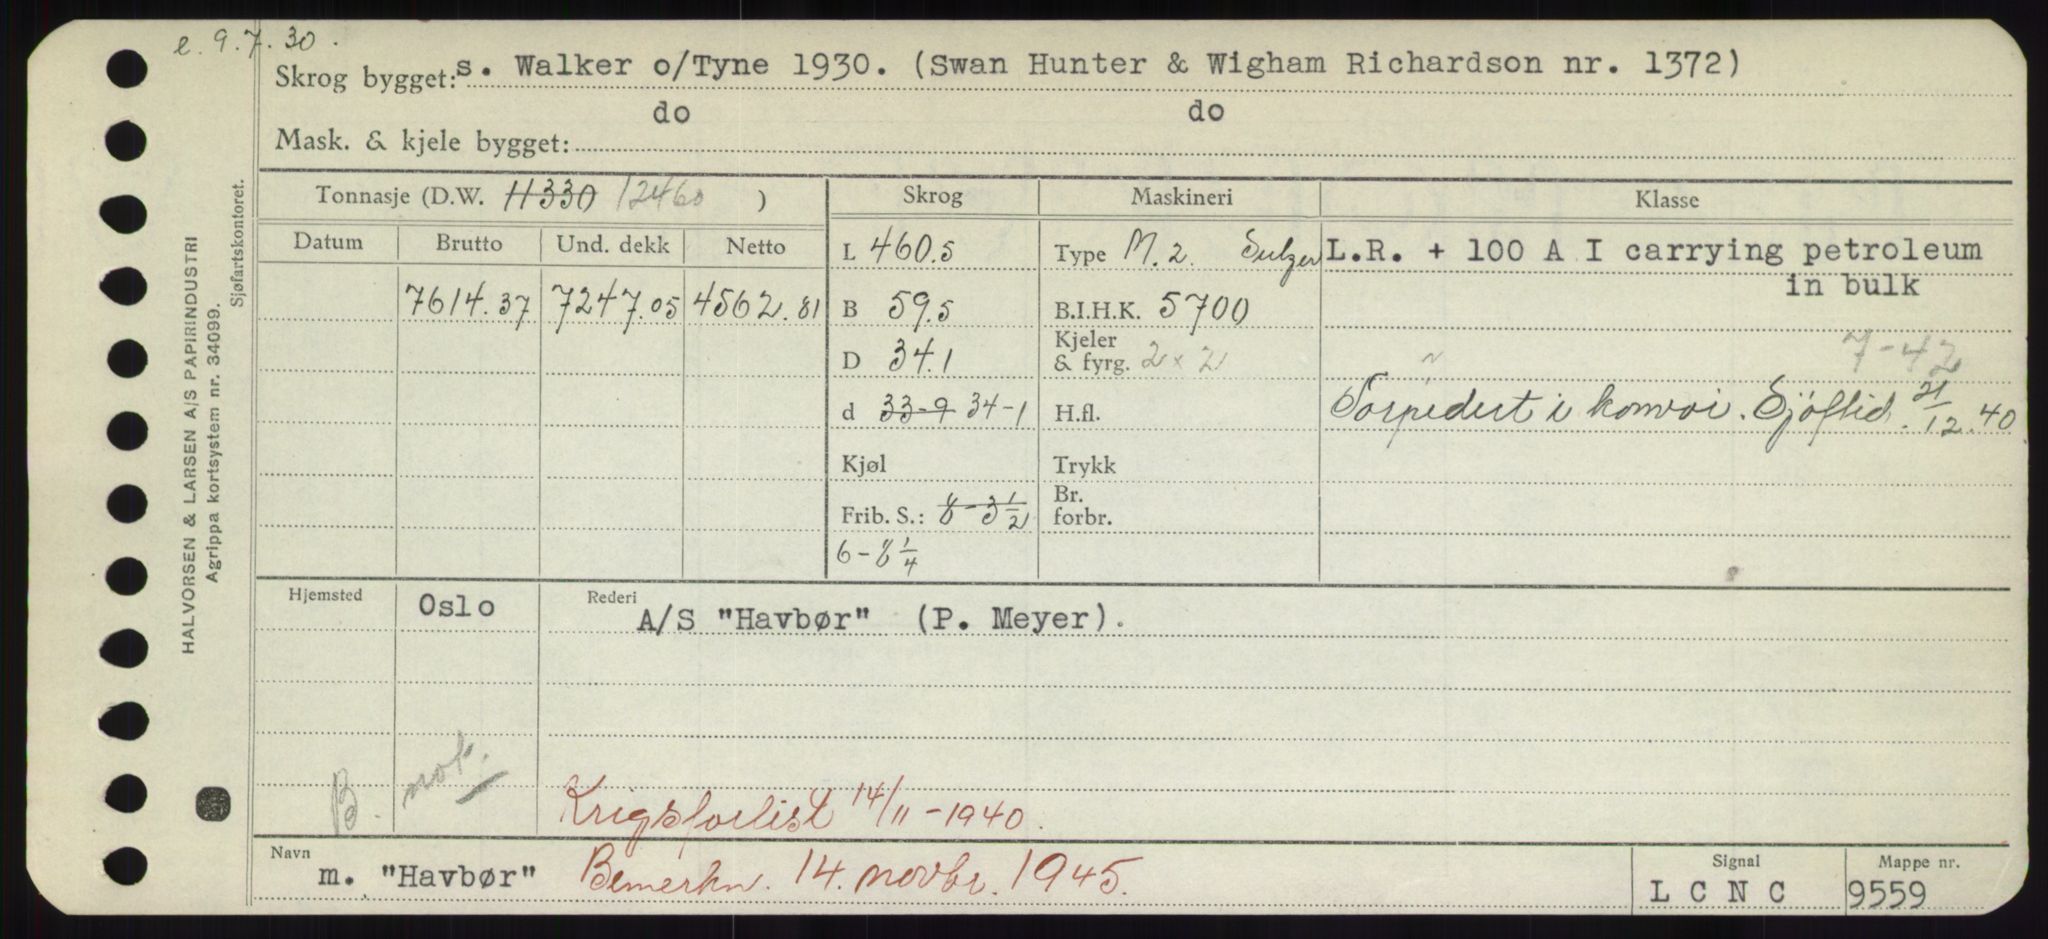 e. 9.7.30.
Skrog bygget: s. Walker o/Tyne 1930. (Swan Hunter & Wigham Richardson nr. 1372)
do do
Mask. & kjele bygget:
Tonnasje (D.W. 11330 12460 ) Skrog Maskineri Klasse
Datum Brutto Und. dekk Netto L 460.5 Type M. 2. Sulzer L.R. + 100 A I carrying petroleum
in bulk
7614.37 7247.05 4562.81 B 59.5 B.I.H.K. 5700
D 34.1 Kjeler & fyrg. 2 x 2 7-42
d 33-9 34-1 H.fl. Torpedert i konvoi. Sjöftid. 21/12.40
Kjøl Trykk
Frib. S.: 8-3 1/2 Br. forbr.
6-8 1/4
Hjemsted Oslo Rederi A/S "Havbør" (P. Meyer).
B. not.
Krigsforlist 14/11-1940.
Navn m. "Havbør" Bemerkn. 14. novbr. 1945. Signal LCNC Mappe nr. 9559
HALVORSEN & LARSEN A/S PAPIRINDUSTRI
Agrippa kortsystem nr. 34099.
Sjøfartskontoret.